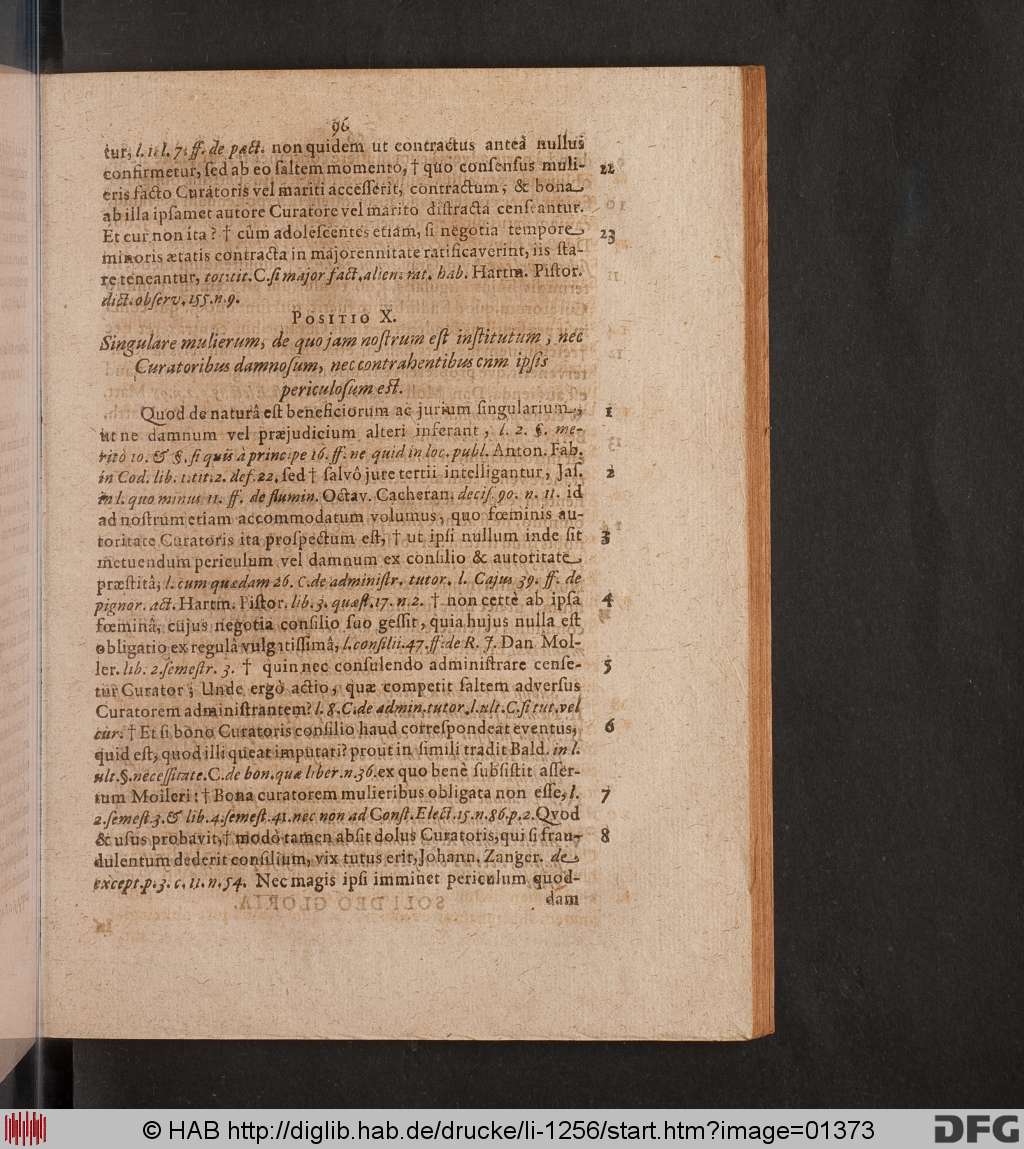 96
tur, l. 1. l. 7. ff. de pact. non quidem ut contractus anteà nullus
confirmetur, sed ab eo saltem momento, † quo consensus muli- 22
eris facto Curatoris vel mariti accesserit, contractum, & bona
ab illa ipsamet autore Curatore vel marito distracta censeantur.
Et cur non ita? † cùm adolescentes etiam, si negotia tempore 23
minoris ætatis contracta in majorennitate ratificaverint, iis sta-
re teneantur, tot. tit. C. si major fact. alien. rat. hab. Hartm. Pistor.
dict. observ. 155. n. 9.
POSITIO X.
Singulare mulierum, de quo jam nostrum est institutum, nec
Curatoribus damnosum, nec contrahentibus cnm ipsis
periculosum est.
Quod de naturâ est beneficiorum ac jurium singularium, 1
ut ne damnum vel præjudicium alteri inferant, l. 2. §. me-
ritò 10. & §. si quis à principe 16. ff. ne quid in loc. publ. Anton. Fab.
in Cod. lib. 1. tit. 2. def. 22. sed † salvô jure tertii intelligantur, Jas. 2
in l. quo minus 11. ff. de flumin. Octav. Cacheran. decis. 90. n. 11. id
ad nostrum etiam accommodatum volumus, quo fœminis au-
toritate Curatoris ita prospectum est, † ut ipsi nullum inde sit 3
metuendum periculum vel damnum ex consilio & autoritate
præstitâ, l. cum quædam 26. C. de administr. tutor. l. Cajus 39. ff. de
pignor. act. Hartm. Pistor. lib. 3. quæst. 17. n. 2. † non certè ab ipsa 4
fœminâ, cujus negotia consilio suo gessit, quia hujus nulla est
obligatio ex regulâ vulgatissimâ, l. consilii. 47. ff. de R. J. Dan Mol-
ler. lib. 2. semestr. 3. † quin nec consulendo administrare cense- 5
tur Curator; Unde ergò actio, quæ competit saltem adversus
Curatorem administrantem? l. 8. C. de admin. tutor. l. ult. C. si tut. vel
cur. † Et si bono Curatoris consilio haud correspondeat eventus, 6
quid est, quod illi queat imputari? prout in simili tradit Bald. in l.
ult. §. necessitate. C. de bon. quæ liber. n. 36. ex quo benè subsistit asser-
tum Molleri: † Bona curatorem mulieribus obligata non esse, l. 7
2. semest. 3. & lib. 4. semest. 41. nec non ad Const. Elect. 15. n. 86. p. 2. Qvod
& usus probavit, † modò tamen absit dolus Curatoris, qui si frau- 8
dulentum dederit consilium, vix tutus erit, Johann. Zanger. de
except. p. 3. c. 11. n. 54. Nec magis ipsi imminet periculum quod-
dam
© HAB http://diglib.hab.de/drucke/li-1256/start.htm?image=01373
DFG